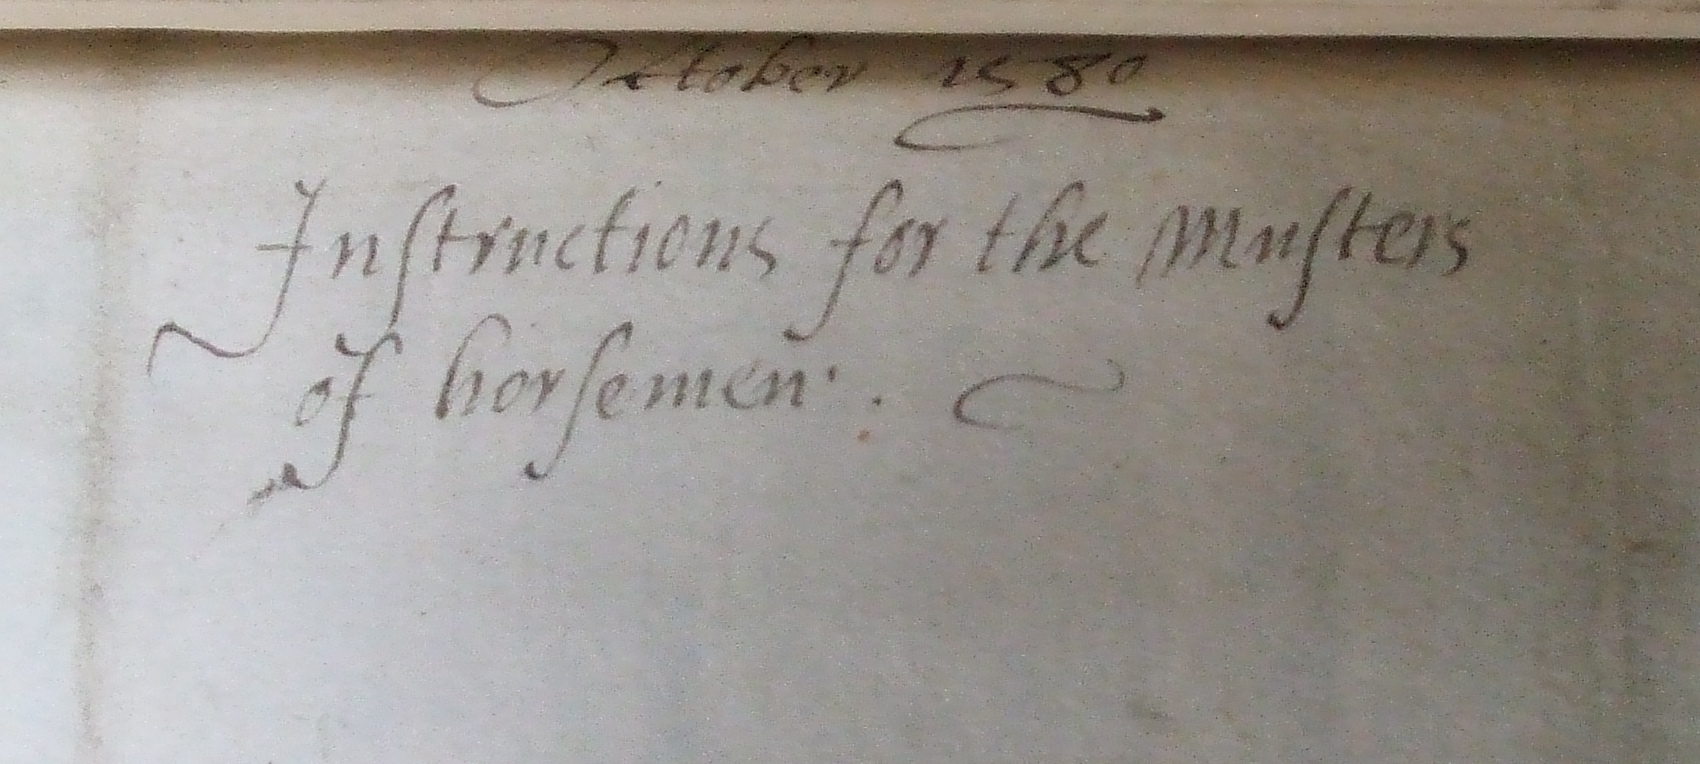 October 1580
Inſtructions for the Muſters
of horſemen .